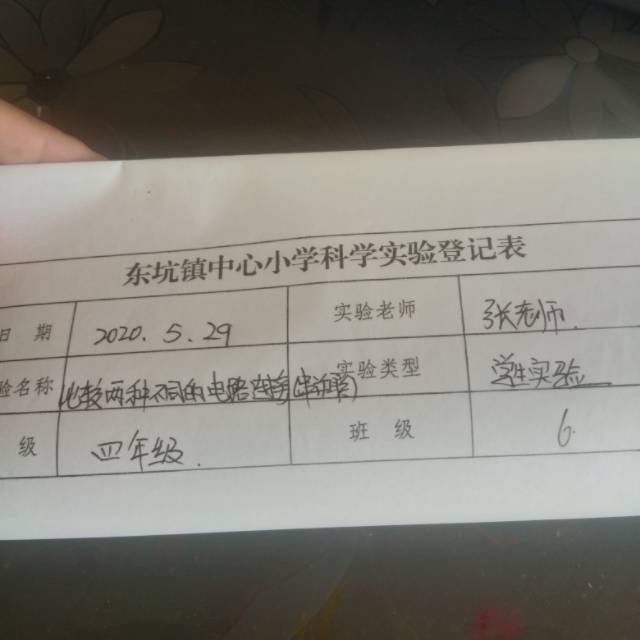 东坑镇中心小学科学实验登记表
日 期 2020.5.29 实验老师 张老师.
验名称 比较两种不同的电路连接(串并联) 实验类型 学生实验
级 四年级. 班 级 6.